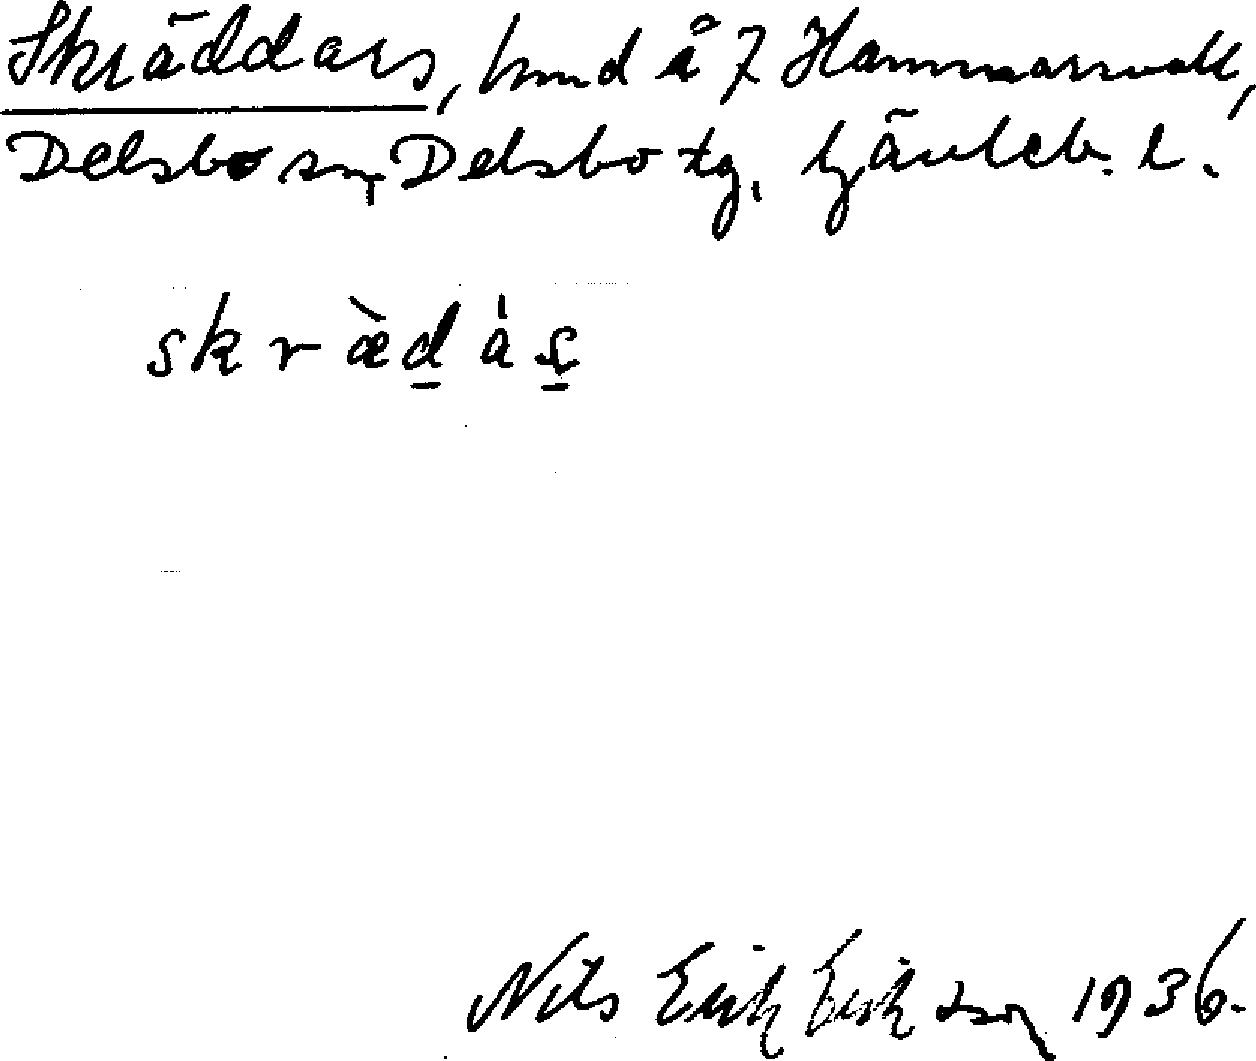 Skräddars, hmd å 7 Hammarsvall,
Delsbo sn, Delsbo tg, Gävleb. l.
skræ̀d̲ás̲
Nils Erik Eriksson 1936.